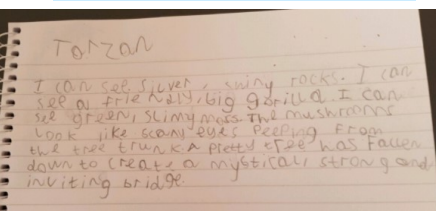 Torzan
I can see silver, shiny rocks. I can
see a friendly, big gorilla. I can
see green, slimy moss. The mushrooms
look like scary eyes peeping from
the tree trunk. A pretty tree has fallen
down to create a mystical, strong and
inviting bridge.